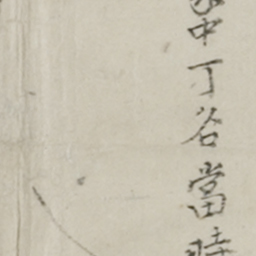 中丁谷當時